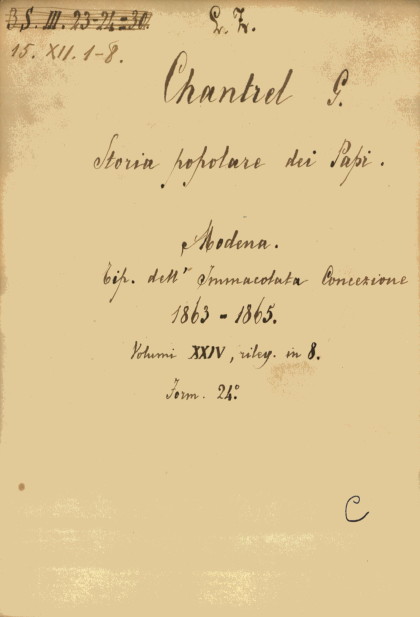 B S. III. 23-24=30.
15. XII. 1-8.
Chantrel G.
Storia popolare dei Papi.
Modena.
Tip. dell' Immacolata Concezione
1863 - 1865.
Volumi XXIV, rileg. in 8.
Form. 24º
C